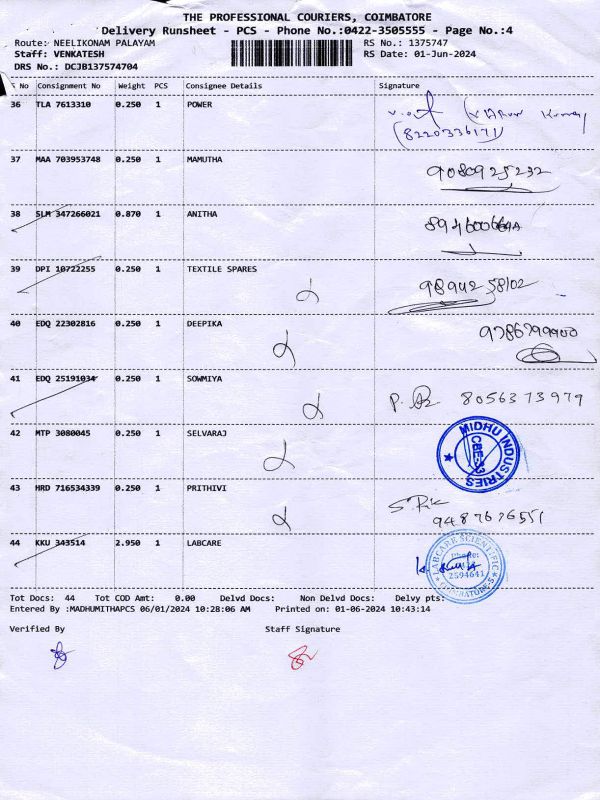 THE PROFESSIONAL COURIERS, COIMBATORE
Delivery Runsheet - PCS - Phone No.:0422-3505555 - Page No.:4
Route: NEELIKONAM PALAYAM RS No.: 1375747
Staff: VENKATESH RS Date: 01-Jun-2024
DRS No.: DCJB137574704
No Consignment No Weight PCS Consignee Details Signature
36 TLA 7613310 0.250 1 POWER
(8220336171)
37 MAA 703953748 0.250 1 MAMUTHA 9080925232
38 SLM 347266021 0.870 1 ANITHA
39 DPI 10722255 0.250 1 TEXTILE SPARES 9894258102
40 EDQ 22302816 0.250 1 DEEPIKA 9786799900
41 EDQ 25191034 0.250 1 SOWMIYA P. 8056373979
42 MTP 3080045 0.250 1 SELVARAJ MIDHU INDUSTRIES CBE-33
43 HRD 716534339 0.250 1 PRITHIVI
9487676551
44 KKU 343514 2.950 1 LABCARE LABCARE SCIENTIFIC Phone: 2594641 COIMBATORE-5
Tot Docs: 44 Tot COD Amt: 0.00 Delvd Docs: Non Delvd Docs: Delvy pts:
Entered By :MADHUMITHAPCS 06/01/2024 10:28:06 AM Printed on: 01-06-2024 10:43:14
Verified By Staff Signature